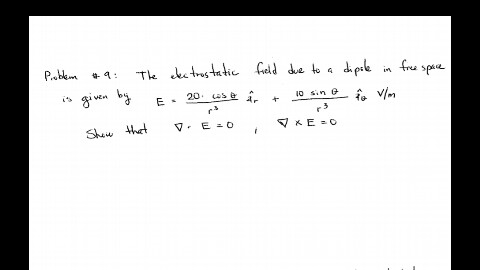 Problem # 9: The electrostatic field due to a dipole in free space
is given by E = 20. cos θ / r³ âr + 10 sin θ / r³ âθ V/m
Show that ∇ · E = 0 , ∇ × E = 0